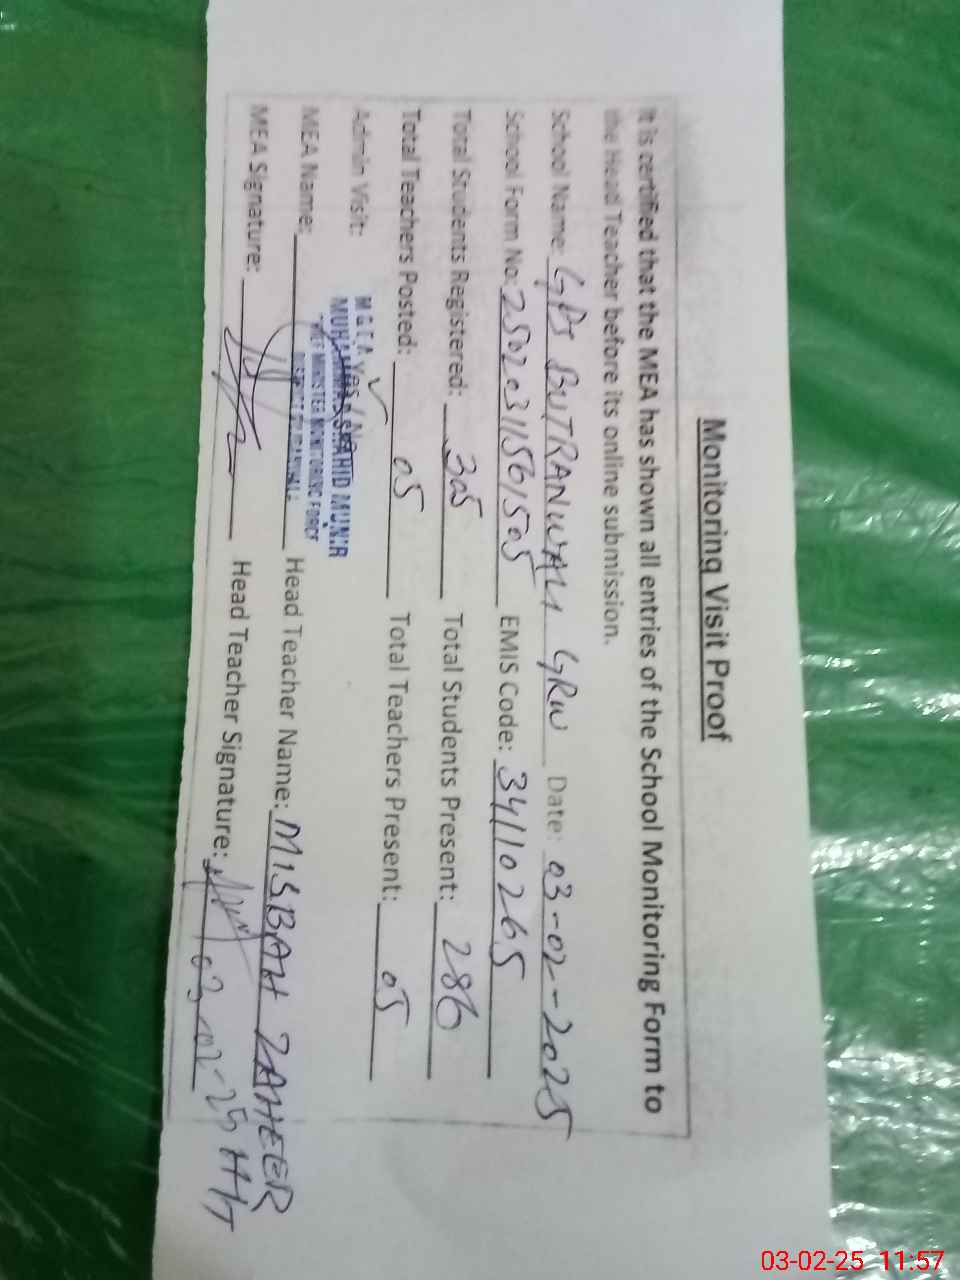 Monitoring Visit Proof
It is certified that the MEA has shown all entries of the School Monitoring Form to
the Head Teacher before its online submission.
School Name: GPS BUTRANWALI GRW Date: 03-02-2025
School Form No: 25020311561505 EMIS Code: 34110265
Total Students Registered: 305 Total Students Present: 286
Total Teachers Posted: 05 Total Teachers Present: 05
Admin Visit: Yes / No ✓
M.G.E.A
SHAHID MUNIR
MEA Name: Head Teacher Name: MISBAH ZAHEER
CHIEF MINISTER MONITORING FORCE
MEA Signature: Head Teacher Signature: 03-02-25 H/T
03-02-25 11:57